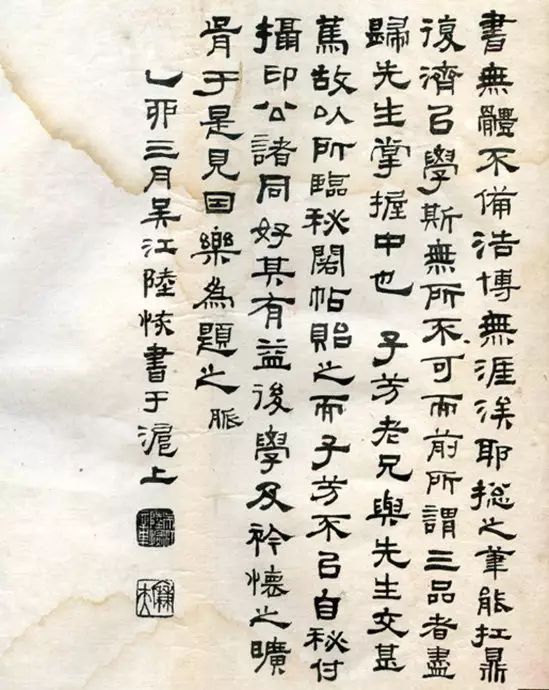 書無體不備浩博無涯涘耶揔之筆能扛鼎
復濟㠯學斯無所不可而前所謂三品者盡
歸先生掌握中也 子芳老兄與先生交甚
篤故以所臨秘閣帖貽之而子芳不㠯自秘付
攝印公諸同好其有益後學及衿懷之曠
胥于是見囙樂為題之 脈
乙卯三月吳江陸恢書于滬上
廉夫